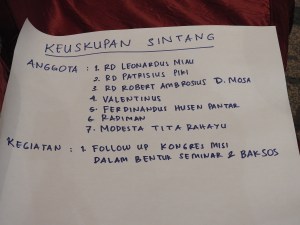 KEUSKUPAN SINTANG
ANGGOTA : 1. RD LEONARDUS MIAU
2. RD PATRISIUS PIKI
3. RD ROBERT AMBROSIUS D. MOSA
4. VALENTINUS
5. FERDINANDUS HUSEN PANTAR
6 RADIMAN
7. MODESTA TITA RAHAYU
KEGIATAN : 1. FOLLOW UP KONGRES MISI
DALAM BENTUK SEMINAR & BAKSOS